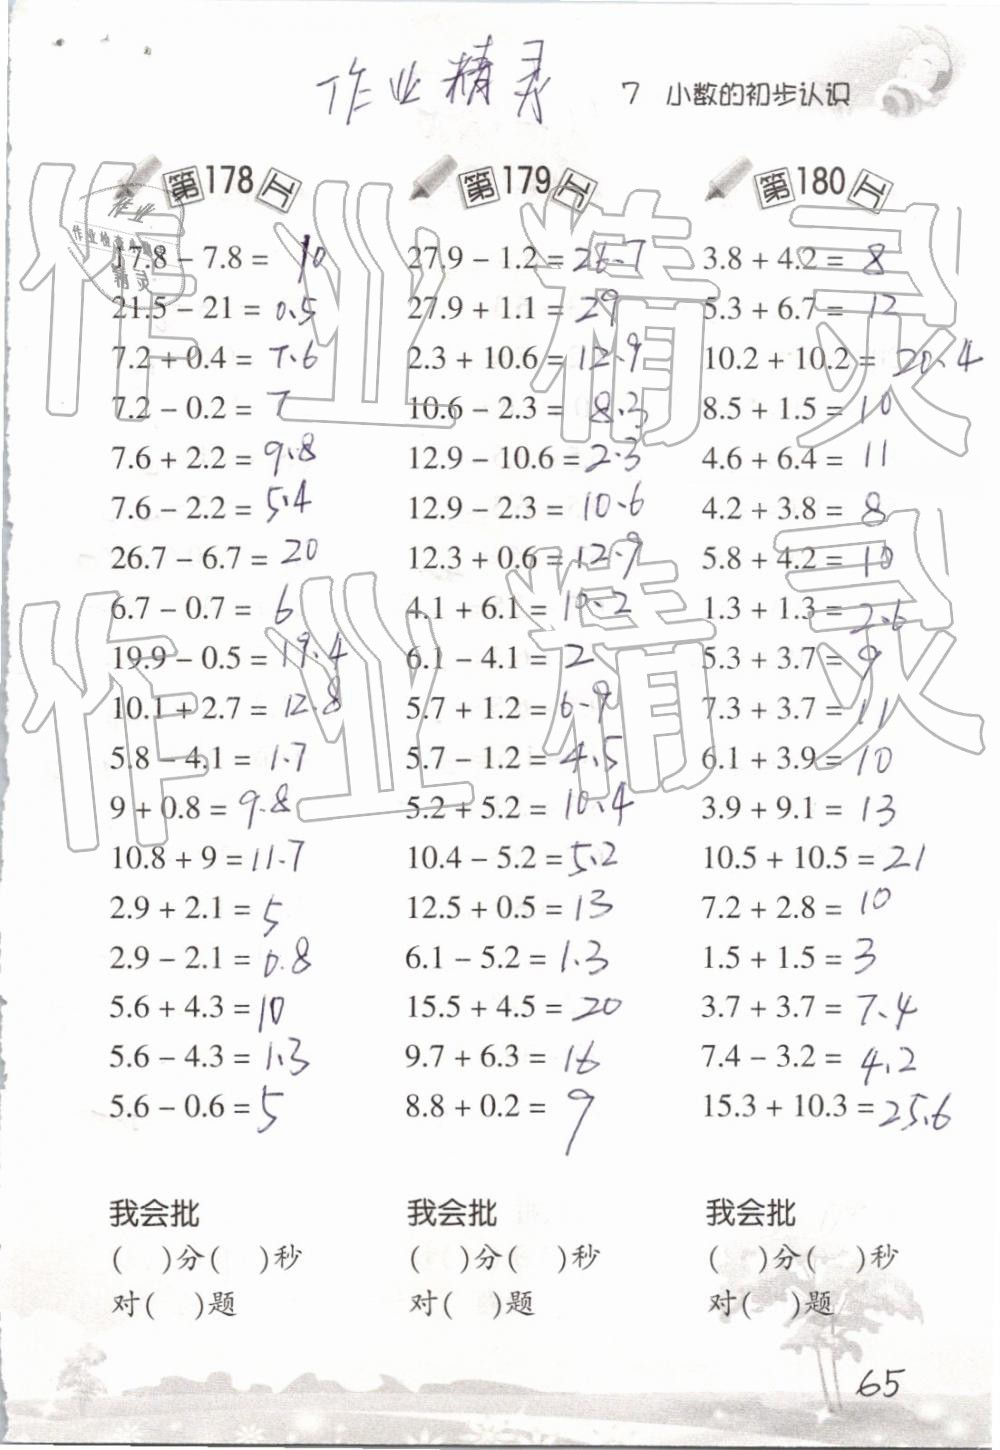 作业精灵
7 小数的初步认识
第178天
17.8 - 7.8 = 10
21.5 - 21 = 0.5
7.2 + 0.4 = 7.6
7.2 - 0.2 = 7
7.6 + 2.2 = 9.8
7.6 - 2.2 = 5.4
26.7 - 6.7 = 20
6.7 - 0.7 = 6
19.9 - 0.5 = 19.4
10.1 + 2.7 = 12.8
5.8 - 4.1 = 1.7
9 + 0.8 = 9.8
10.8 + 9 = 11.7
2.9 + 2.1 = 5
2.9 - 2.1 = 0.8
5.6 + 4.3 = 10
5.6 - 4.3 = 1.3
5.6 - 0.6 = 5
我会批
( )分( )秒
对( )题
第179天
27.9 - 1.2 = 26.7
27.9 + 1.1 = 29
2.3 + 10.6 = 12.9
10.6 - 2.3 = 8.3
12.9 - 10.6 = 2.3
12.9 - 2.3 = 10.6
12.3 + 0.6 = 12.9
4.1 + 6.1 = 10.2
6.1 - 4.1 = 2
5.7 + 1.2 = 6.9
5.7 - 1.2 = 4.5
5.2 + 5.2 = 10.4
10.4 - 5.2 = 5.2
12.5 + 0.5 = 13
6.1 - 5.2 = 1.3
15.5 + 4.5 = 20
9.7 + 6.3 = 16
8.8 + 0.2 = 9
我会批
( )分( )秒
对( )题
第180天
3.8 + 4.2 = 8
5.3 + 6.7 = 12
10.2 + 10.2 = 20.4
8.5 + 1.5 = 10
4.6 + 6.4 = 11
4.2 + 3.8 = 8
5.8 + 4.2 = 10
1.3 + 1.3 = 2.6
5.3 + 3.7 = 9
7.3 + 3.7 = 11
6.1 + 3.9 = 10
3.9 + 9.1 = 13
10.5 + 10.5 = 21
7.2 + 2.8 = 10
1.5 + 1.5 = 3
3.7 + 3.7 = 7.4
7.4 - 3.2 = 4.2
15.3 + 10.3 = 25.6
我会批
( )分( )秒
对( )题
65
作业精灵
作业精灵